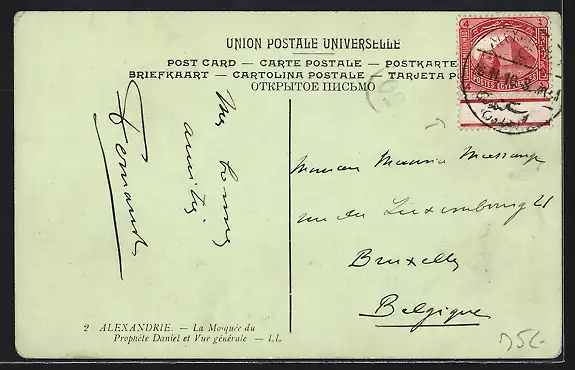 UNION POSTALE UNIVERSELLE
POST CARD — CARTE POSTALE — POSTKARTE
BRIEFKAART — CARTOLINA POSTALE — TARJETA PO
ОТКРЫТОЕ ПИСЬМО
4 4
POSTES
Mes bonnes
amitiés
Fernande
Monsieur Maurice
rue du Luxembourg 21
Bruxelles
Belgique
2 ALEXANDRIE. — La Mosquée du
Prophète Daniel et Vue générale — LL.